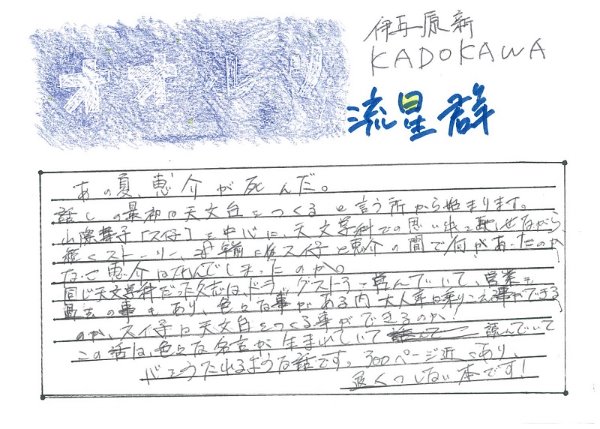 伊与原新
KADOKAWA
オオルリ
流星群
あの夏、恵介が死んだ。
話しの最初は天文台をつくると言う所から始まります。
山際彗子「スイ子」を中心に、天文学科での思い出と馳せながら
続くストーリー、 スイ子と恵介の間で何があったのか
なぜ恵介は死んでしまったのか。
同じ天文学科だった久志は、ドラッグストアを営んでいて、営業も
過去の事もあり、色々な事がある内 大人
のか、スイ子は天文台をつくる事ができるのか!
この話は色々な名言が生まれていて 読んでいて
心をうたれるような話です。300ページ近くあり、
良くつしない本です!